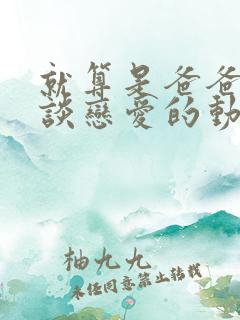 就算是爸爸
談戀愛的動
柚九九
未經同意禁止轉載